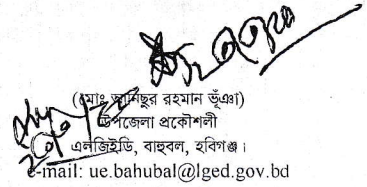 (মোঃ আনিছুর রহমান ভূঁঞা)
উপজেলা প্রকৌশলী
এলজিইডি, বাহুবল, হবিগঞ্জ।
e-mail: ue.bahubal@lged.gov.bd